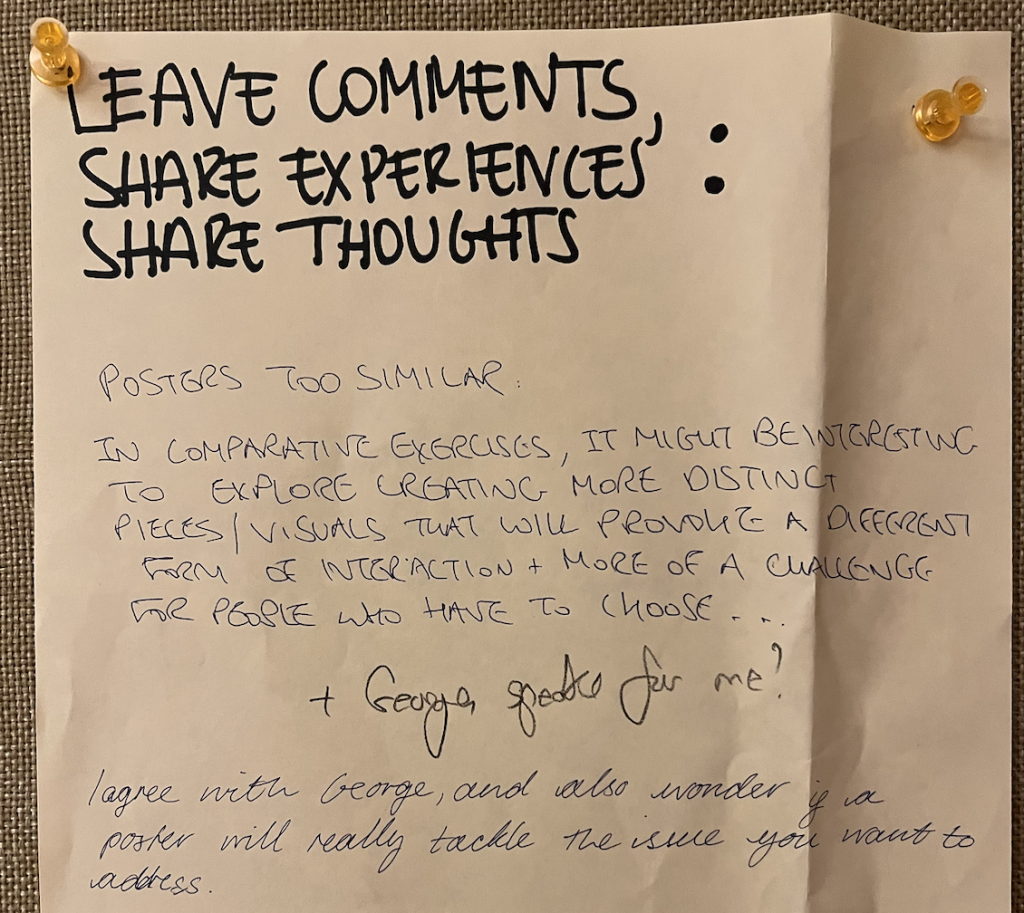 LEAVE COMMENTS,
SHARE EXPERIENCES :
SHARE THOUGHTS
POSTERS TOO SIMILAR:
IN COMPARATIVE EXERCISES, IT MIGHT BE INTERESTING
TO EXPLORE CREATING MORE DISTINCT
PIECES/VISUALS THAT WILL PROVOKE A DIFFERENT
FORM OF INTERACTION + MORE OF A CHALLENGE
FOR PEOPLE WHO HAVE TO CHOOSE...
+ George speaks for me!
I agree with George, and also wonder if a
poster will really tackle the issue you want to
address.